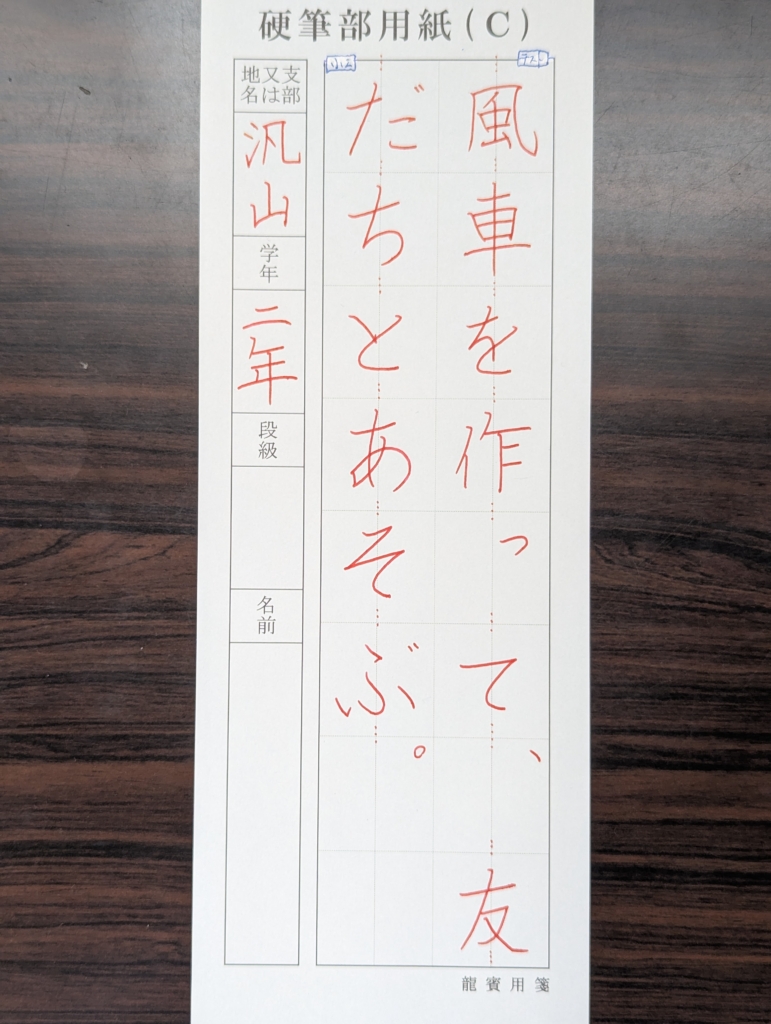 硬筆部用紙(C)
テスト
小二
風車を作って、友
だちとあそぶ。
支部又は地名
汎山
学年
二年
段級
名前
龍賓用箋